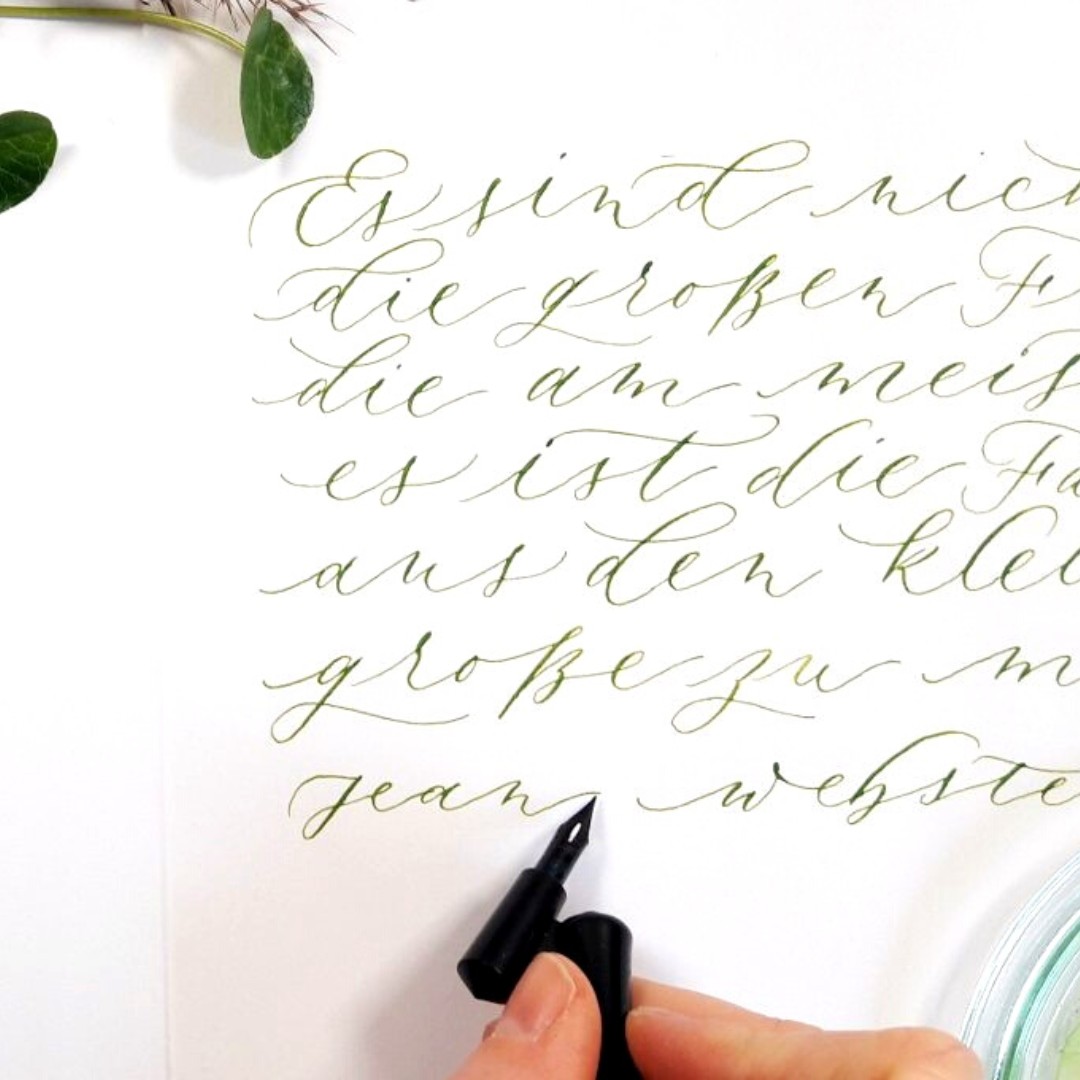 Es sind nich
die großen F
die am meis
es ist die Fä
aus den klei
große zu m
jean webste